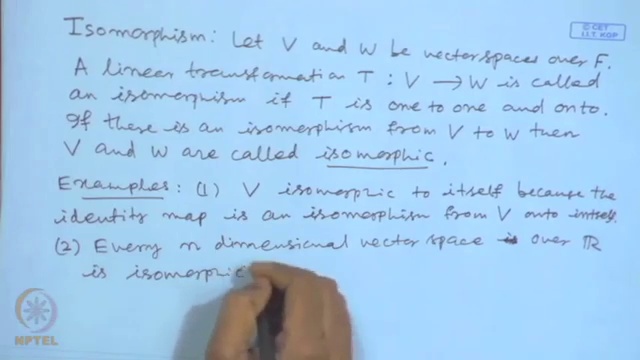 © CET
I.I.T. KGP
Isomorphism: Let V and W be vector spaces over F.
A linear transformation T : V → W is called
an isomorphism if T is one to one and onto.
If there is an isomorphism from V to W then
V and W are called isomorphic.
Examples: (1) V isomorphic to itself because the
identity map is an isomorphism from V onto itself.
(2) Every n dimensional vector space over ℝ
is isomorphic
NPTEL